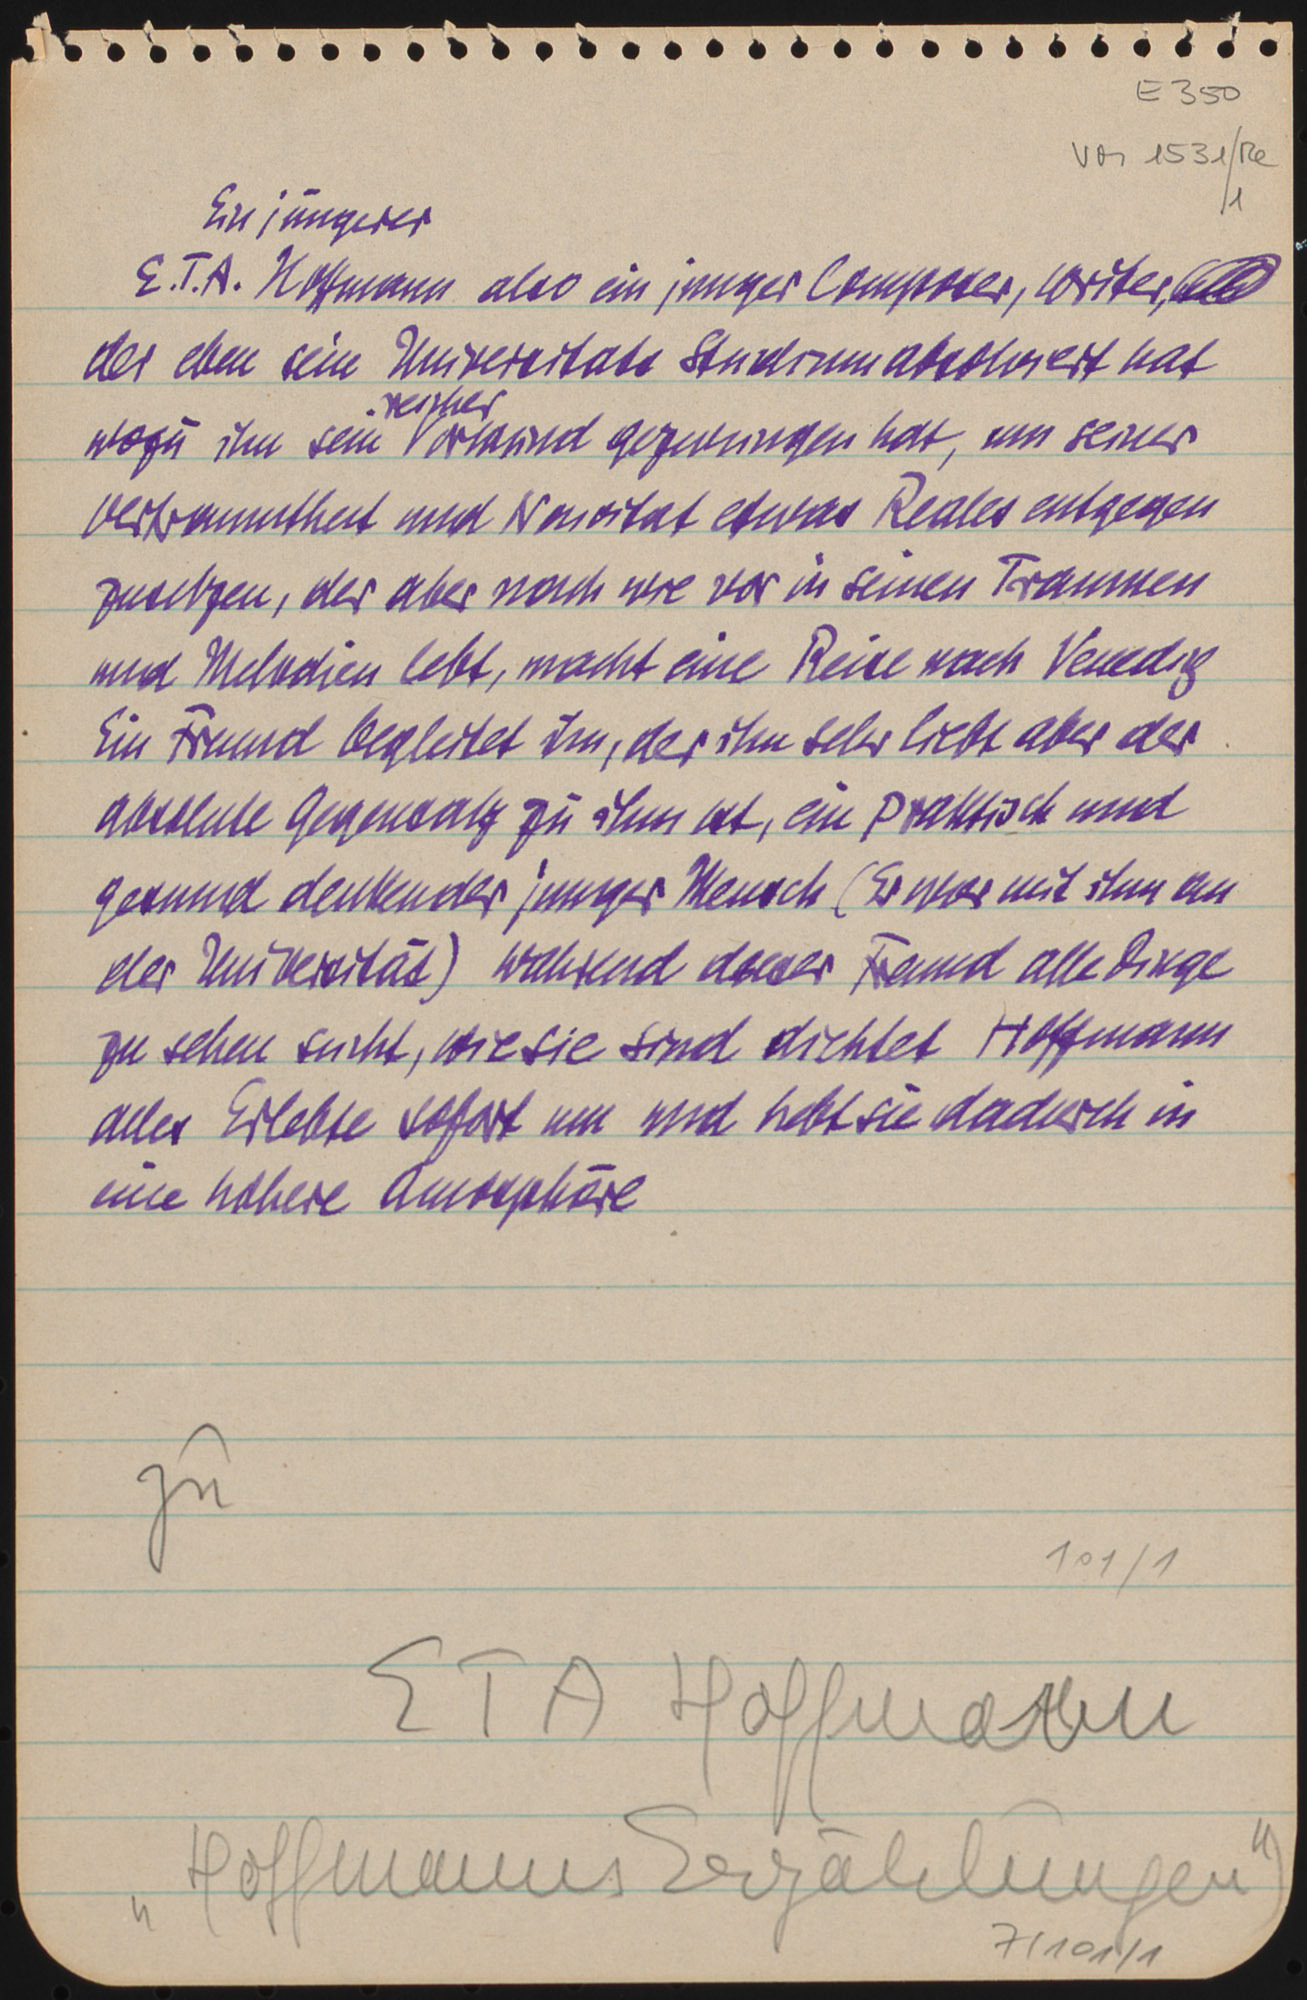 E 350
Vor 1531/Re
/1
Ein jüngerer
E.T.A. Hoffmann also ein junger Composer, writer,
der eben sein Universitats Studium absolviert hat
reicher
wozu ihn sein Vormund gezwungen hat, um seiner
Vertraumtheit und etwas Reales entgegen
zusetzen, der aber nach wie vor in seinen Traumen
und Melodien lebt, macht eine Reise nach Venedig
Ein Freund begleitet ihn, der ihn sehr liebt aber der
absolute Gegensatz zu ihm ist, ein praktisch und
gesund denkender junger Mensch (Er war mit ihm an
der Universität) während dieser Freund alle Dinge
zu sehen sucht, wie sie sind dichtet Hoffmann
alles Erlebte sofort um und hebt sie dadurch in
eine höhere Atmosphäre
zu
101/1
ETA Hoffmann
„Hoffmanns Erzählungen"
7/101/1